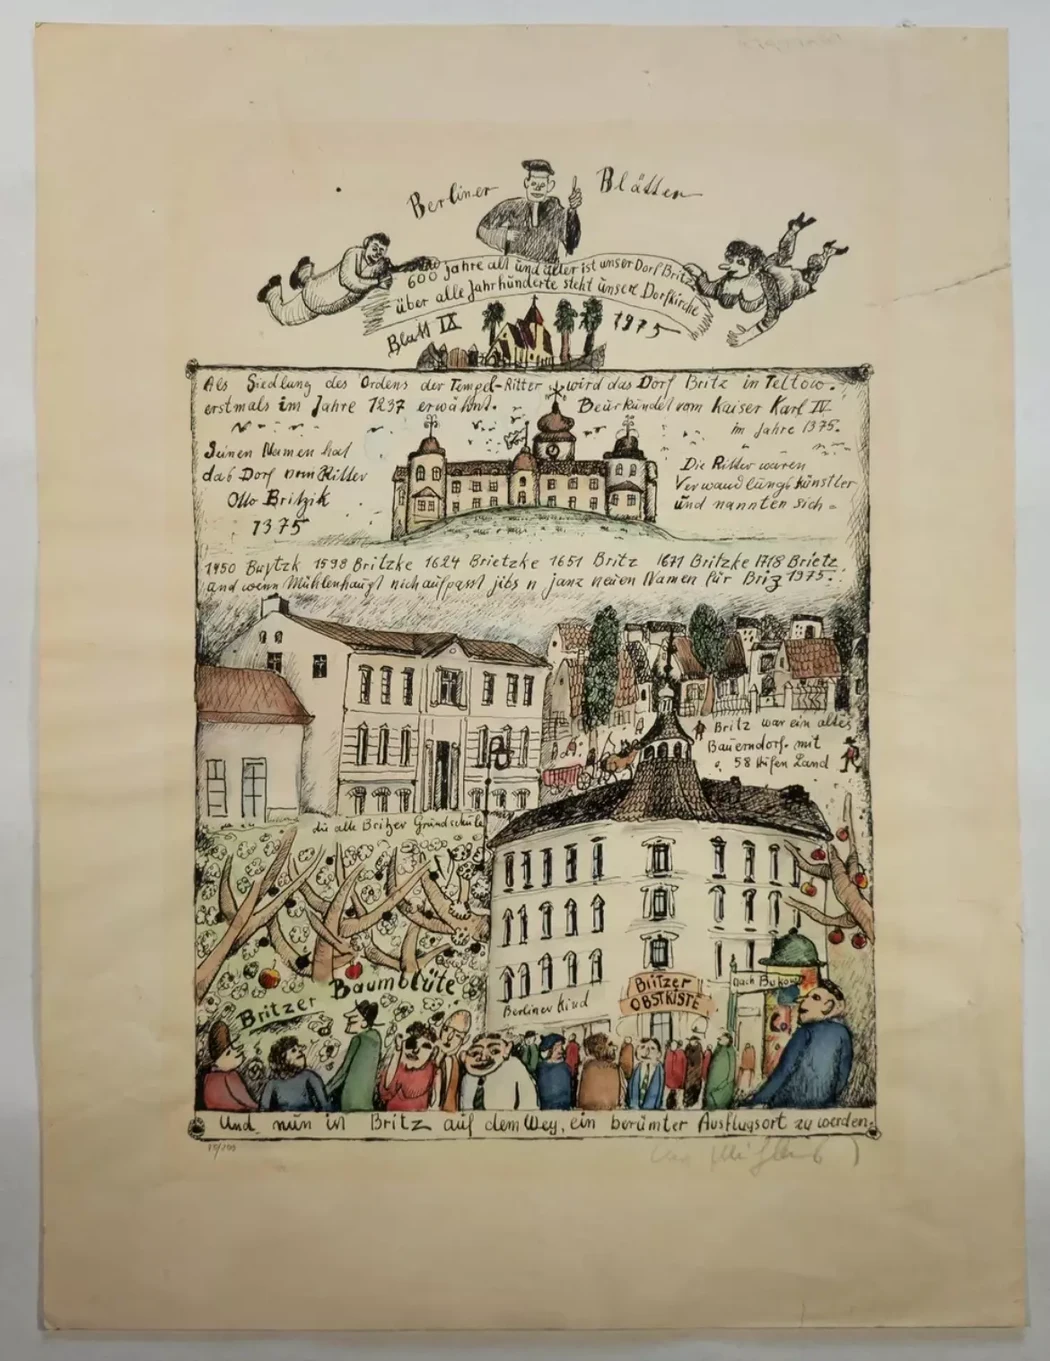 Berliner Blätter
600 Jahre alt und älter ist unser Dorf Britz
über alle Jahrhünderte steht ünsere Dorfkirche
Blatt IX
1975
Als Siedlung des Ordens der Tempel-Ritter wird das Dorf Britz in Teltow.
erstmals im Jahre 1237 erwähnt. Beürkündet vom Kaiser Karl IV.
im Jahre 1375.
Seinen Namen hat
das Dorf vom Ritter
Otto Britzik
1375
Die Ritter waren
Verwandlüngskünstler
und nannten sich =
1450 Brytzk 1598 Britzke 1624 Brietzke 1651 Britz 1671 Britzke 1718 Brietz
and wenn Mühlenhaupt nich aufpasst jibs n janz neuen Namen für Briz 1975.
Britz war ein altes
Bauerndorf mit
58 Hüfen Land
die alte Britzer Gründschüle
Britzer Baumblüte
Berliner Kind
Britzer
OBSTKISTE
nach Bukow
Und nun ist Britz auf dem Wey, ein berümter Ausflugsort zu werden.